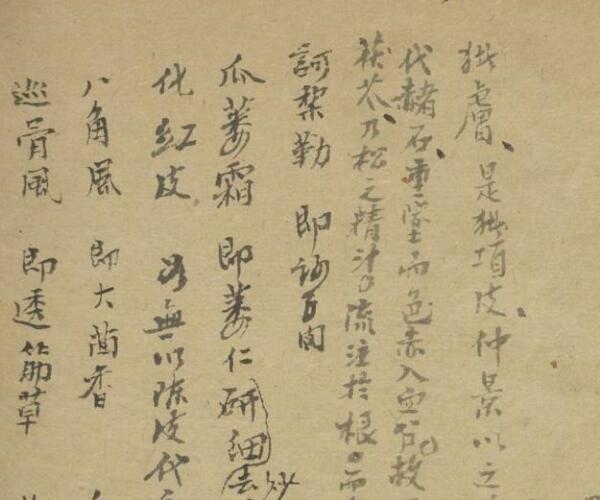 猪膚、是猪項皮、仲景以之
代赭石、重墜而色赤入血分。故
茯苓、乃松之精汁。流注於根。而
訶梨勒 即訶子肉
瓜蔞霜 即蔞仁研細去
炒
化紅皮 如無以陈皮代
八角風 即大茴香
巡骨風 即透筋草